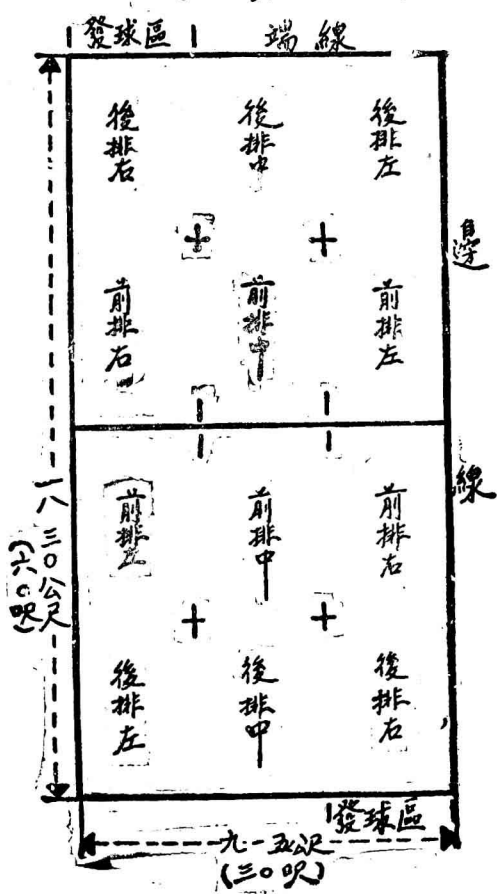 發球區
端線
後排右
後排中
後排左
邊線
前排右
前排中
前排左
一八三〇公尺
(六〇呎)
前排左
前排中
前排右
後排左
後排中
後排右
發球區
九一五公尺
(三〇呎)